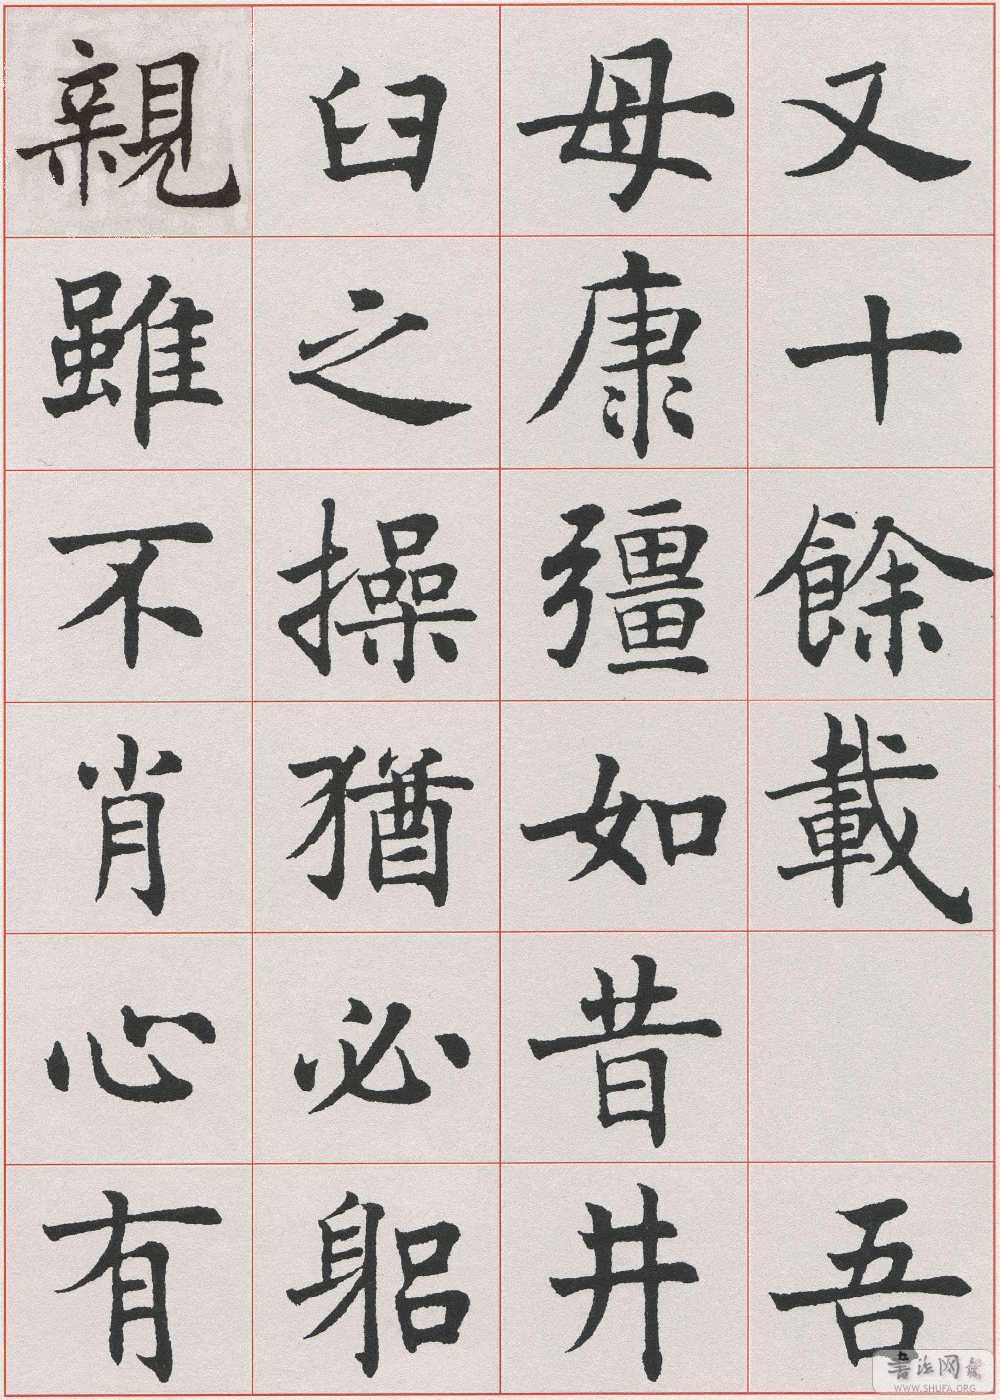 又十餘載 吾
母康彊如昔井
臼之操猶必躳
親雖不肖心有
書法网
WWW.SHUFA.ORG